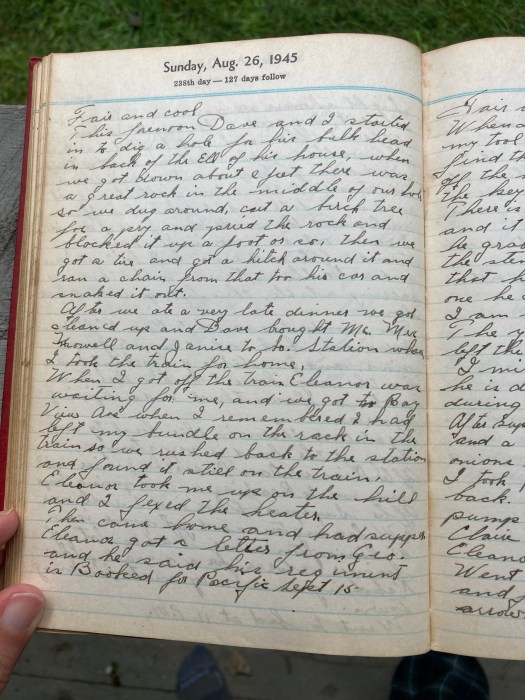 Sunday, Aug. 26, 1945
238th day — 127 days follow
Fair and cool
This forenoon Dave and I started
in to dig a hole for his bulk head
in back of the Ell of his house, when
we got down about 2 feet there was
a great rock in the middle of our hole
so we dug around, cut a birch tree
for a pry and pried the rock and
blocked it up a foot or so, then we
got a tie and got a hitch around it and
ran a chain from that too his car and
snaked it out.
After we ate a very late dinner we got
cleaned up and Dave bought Me, Mrs
and Janice to So. Station where
I took the train for home,
When I got off the train Eleanor was
waiting for me, and we got to Bay
View Ave when I remembered I had
left my bundle on the rack in the
train so we rushed back to the station
and found it still on the train,
Eleanor took me up on the hill
and I fexed the heater
Then came home and had supper
Eleanor got a letter from Geo.
and he said his regiment
is Booked for Pacific Sept 15
Fair
When
my tool
find th
off the
the key
There is
and it
he gra
the ste
that h
one he
I am
The
left the
I mi
he is d
during
After sup
and a
onions
I took
back.
pumps
Claire
Eleano
Went
and
arrow